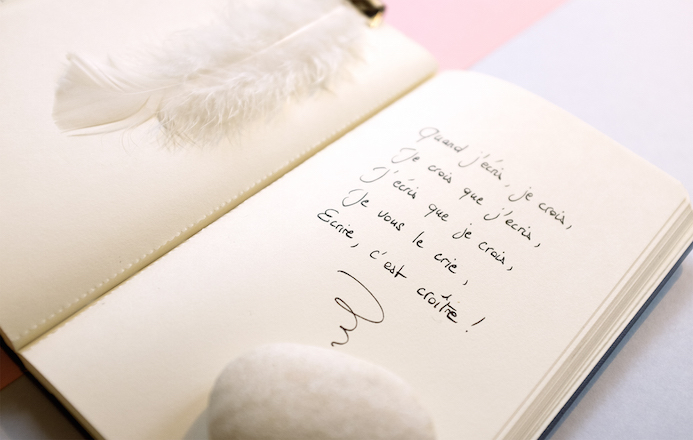 Quand j'écris, je crois,
Je crois que j'écris,
J'écris que je crois,
Je vous le crie,
Ecrire, c'est croître !